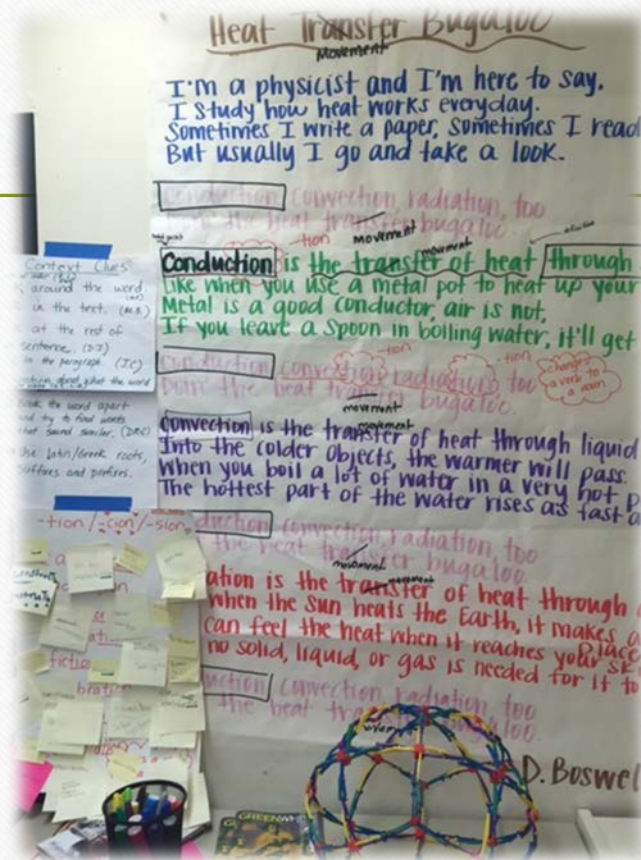 Heat Transfer Bugaloo
Movement
I'm a physicist and I'm here to say.
I study how heat works everyday.
Sometimes I write a paper, sometimes I read
But usually I go and take a look.
conduction convection, radiation, too
the heat transfer bugaloo
movement
-tion
movement
Conduction is the transfer of heat through
Like when you use a metal pot to heat up your
Metal is a good conductor, air is not,
If you leave a spoon in boiling water, it'll get
-tion
tion
conduction convection radiation, too
changes a verb to a noun
Doin' the heat transfer bugaloo.
movement
movement
Convection is the transfer of heat through liquid
Into the colder objects, the warmer will pass.
When you boil a lot of water in a very hot
The hottest part of the water rises as fast a
duction convection, radiation, too
the heat transfer bugaloo
movement
movement
ation is the transfer of heat through
when the Sun heats the Earth, it makes
Place
can feel the heat when it reaches your sk
no solid, liquid, or gas is needed for it to
duction, convection, radiation, too
the heat bugaloo.
D. Boswel
Context Clues
around the word
in the text. (M.B.)
at the rest of
sentence. (D.J)
in the paragraph. (J.C)
what the word
the word apart
and try to find words
that sound similar. (DRC)
Use Latin/Greek roots,
suffixes and prefixes.
-tion/-cion/-sion
fictio
bration
GREENWH